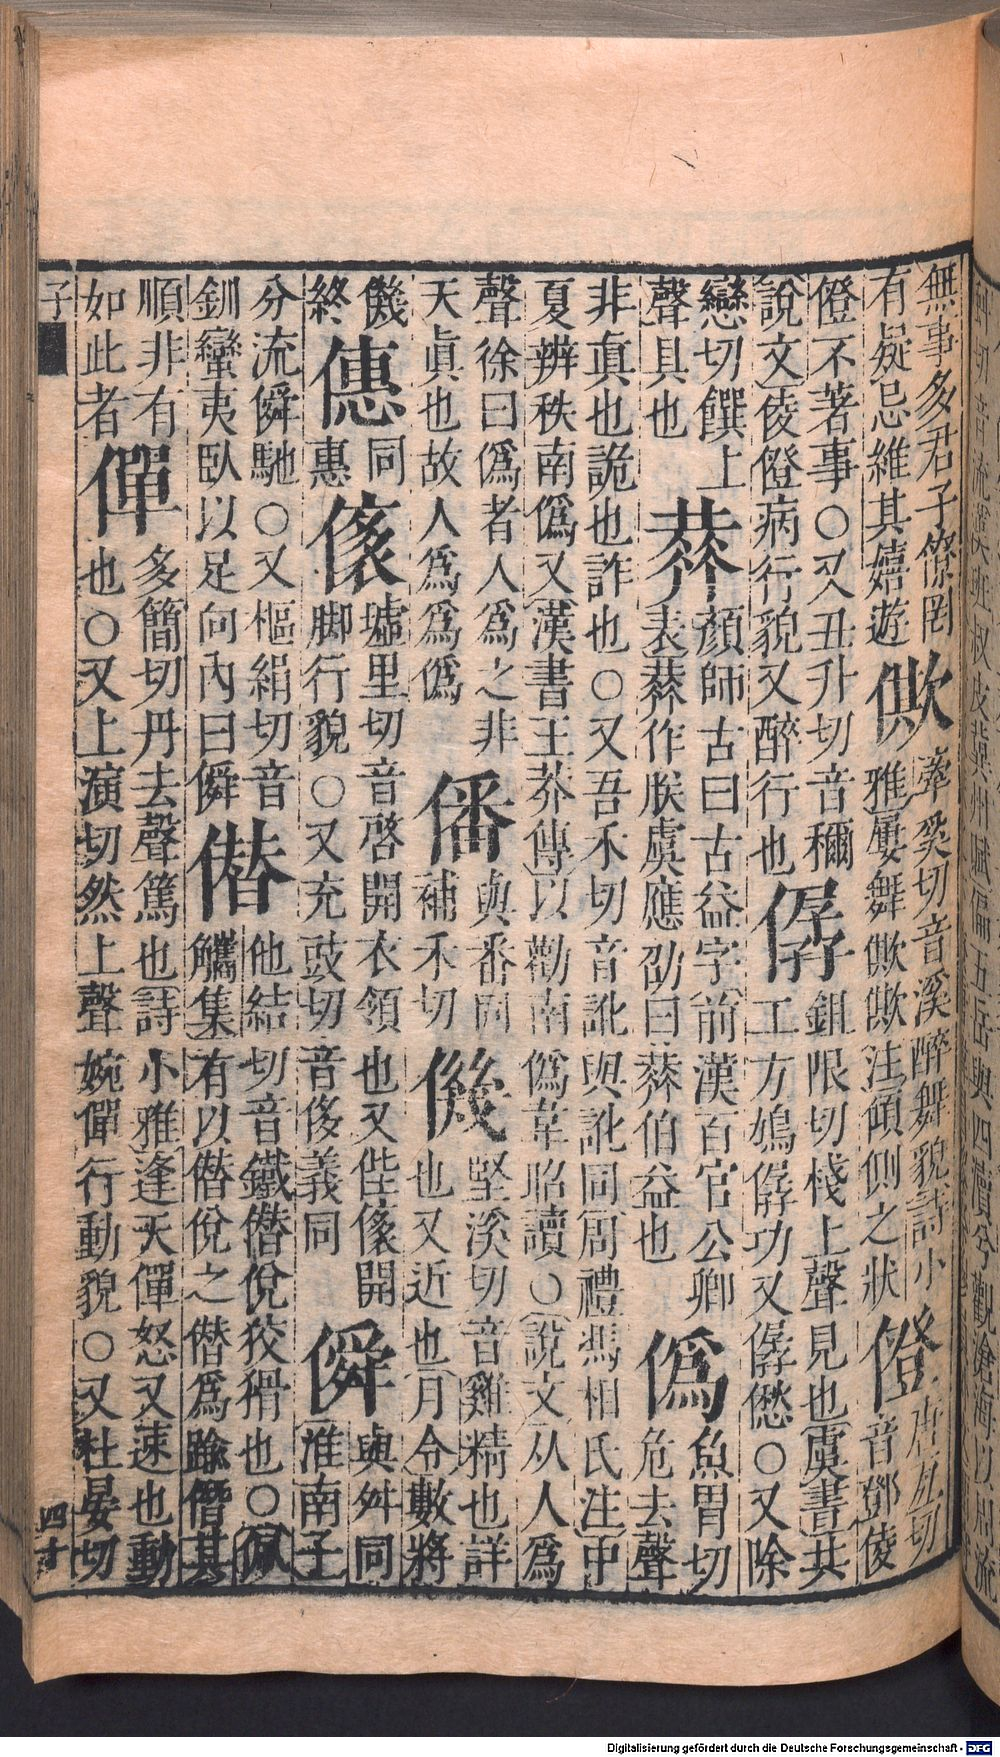 無事多君子傺罔
有疑忌維其嬉遊
僛
牽奚切音溪醉舞貌詩小
雅屢舞僛僛注傾側之狀
僜
唐亙切
音鄧倰
僜不著事○又丑升切音稱
說文倰僜病行貌又醉行也
僝
鉏限切棧上聲見也虞書共
工方鳩僝功又僝僽○又除
戀切饌上
聲具也
顏師古曰古益字前漢百官公卿
表作朕虞應劭曰伯益也
僞
魚胃切
危去聲
非眞也詭也詐也○又吾禾切音訛與訛同周禮馮相氏注中
夏辨秩南僞又漢書王莽傳以勸南僞韋昭讀○說文从人爲
聲徐曰僞者人爲之非
天眞也故人爲爲僞
僠
與番同
補禾切
僟
堅溪切音雞精也詳
也又近也月令數將
僟
終
僡
同
惠
墟里切音啓開衣領也又開
脚行貌○又充豉切音侈義同
僢
與舛同
淮南子
分流僢馳○又樞絹切音
釧蠻夷臥以足向內曰僢
僣
他結切音鐵僣侻狡猾也○佩
觿集有以僣侻之僣爲踰僭其
順非有
如此者
僤
多簡切丹去聲篤也詩小雅逢天僤怒又速也動
也○又上演切然上聲婉僤行動貌○又杜晏切
子
四十
Digitalisierung gefördert durch die Deutsche Forschungsgemeinschaft - DFG